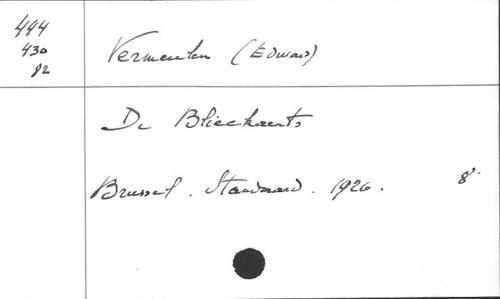 444
430
82
Vermeulen (Edward)
De Blieckaerts
Brussel. Standaard. 1926. 8°